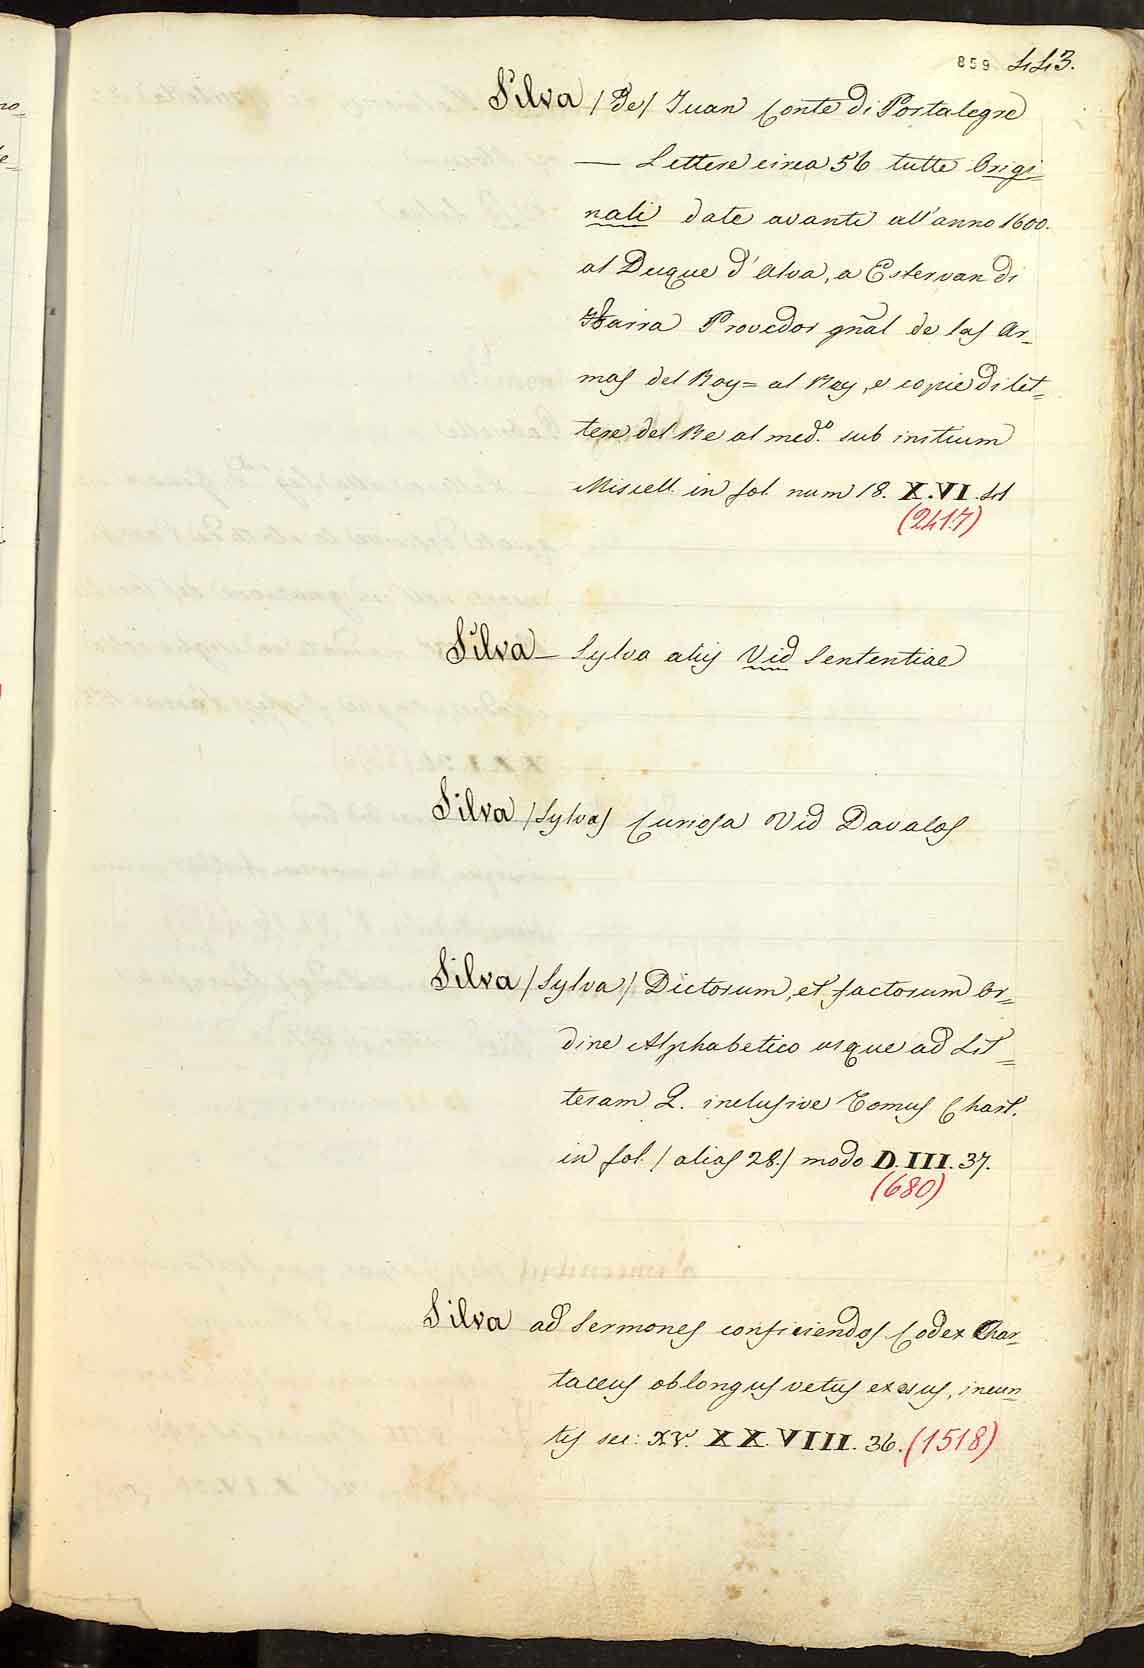 859 443.
Silva /de/ Juan Conte di Portalegre
— Lettere circa 56 tutte Origi=
nali date avanti all'anno 1600.
al Duque d'Alva, a Estervan di
Ybarra Provedor gñal de las Ar=
mas del Rey= al Rey, e copie di let=
tere del Re al med.º sub initium
Miscell. in fol. num 18. X.VI.
(2417)
Silva — Sylva aliis Vid Sententiae
Silva /Sylva/ Curiosa Vid Davalos
Silva /Sylva/ Dictorum, et factorum Or=
dine Alphabetico usque ad Lit=
teram Q. inclusive Tomus Chart.
in fol. /alias 28./ modo D.III.37.
(680)
Silva ad Sermones conficiendos Codex Char=
taceus oblongus vetus exesus, ineun=
tis sec: XV. XX.VIII.36. (1518)